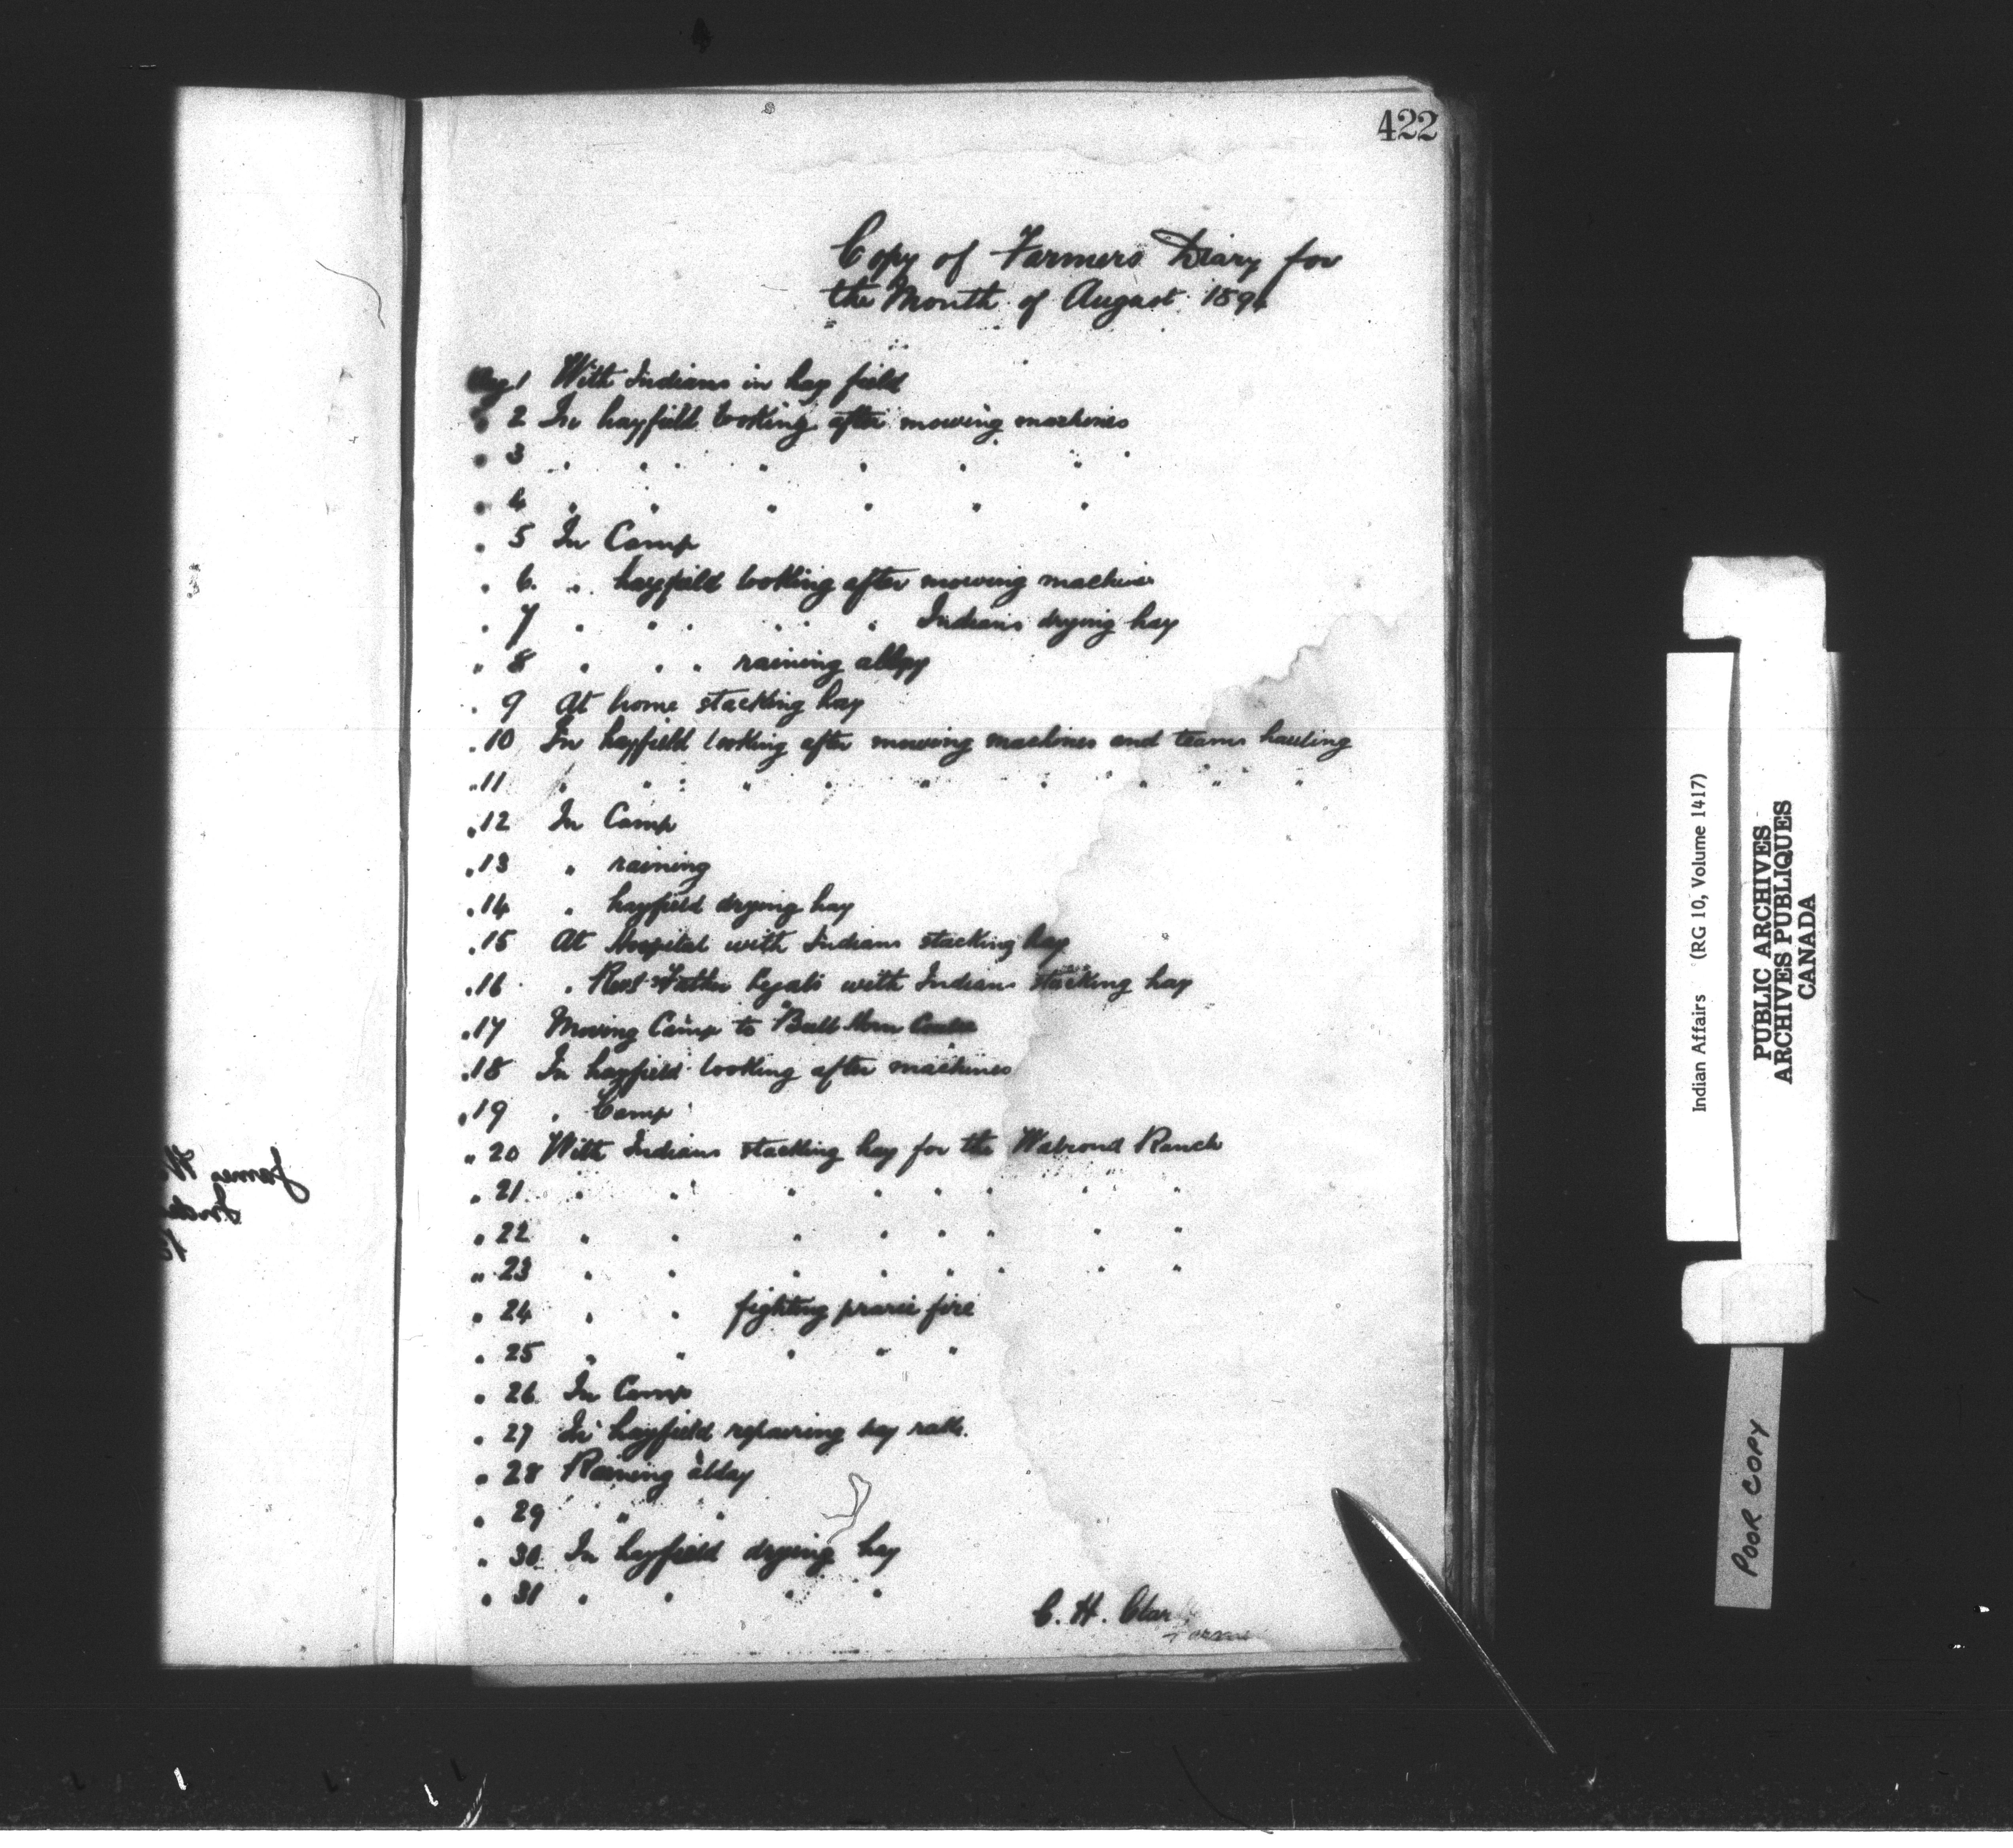 422
Copy of Farmers Diary for
the Month of August 189
Aug 1 With Indians in hay field
" 2 In hayfield looking after mowing machines
" 3 " " " " " " " "
" 4 " " " " " "
" 5 In Camp
" 6 " hayfield looking after mowing machines
" 7 " " " " " " Indians drying hay
" 8 " " " raining allday
" 9 At home stacking hay
" 10 In hayfield looking after mowing machines and teams hauling
" 11 " " " " " " " " " "
" 12 In Camp
" 13 " raining
" 14 " hayfield drying hay
" 15 At Hospital with Indians stacking hay
" 16 " Revd Father Legals with Indians stacking hay
" 17 Moving Camp to Bull Horn Coulee
" 18 In hayfield looking after machines
" 19 " Camp
" 20 With Indians stacking hay for the Walrond Ranch
" 21 " " " " " " " "
" 22 " " " " " " " "
" 23 " " " " " " " "
" 24 " " fighting prarie fire
" 25 " " " " "
" 26 In Camp
" 27 In hayfield repairing hay rake.
" 28 Raining alday
" 29 " "
" 30 In hayfield drying hay
" 31 " " " "
C. H. Clar
James
Indian Affairs (RG 10, Volume 1417)
PUBLIC ARCHIVES
ARCHIVES PUBLIQUES
CANADA
POOR COPY